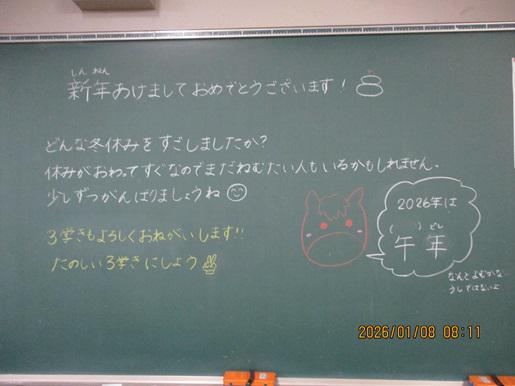 しん ねん
新年あけましておめでとうございます!
どんな冬休みをすごしましたか?
休みがおわってすぐなのでまだねむたい人もいるかもしれません。
少しずつがんばりましょうね
3学きもよろしくおねがいします!!
たのしい3学きにしよう
2026年は
( )どし
午年
なんとよむかな?
うしではないよ
2026/01/08 08:11